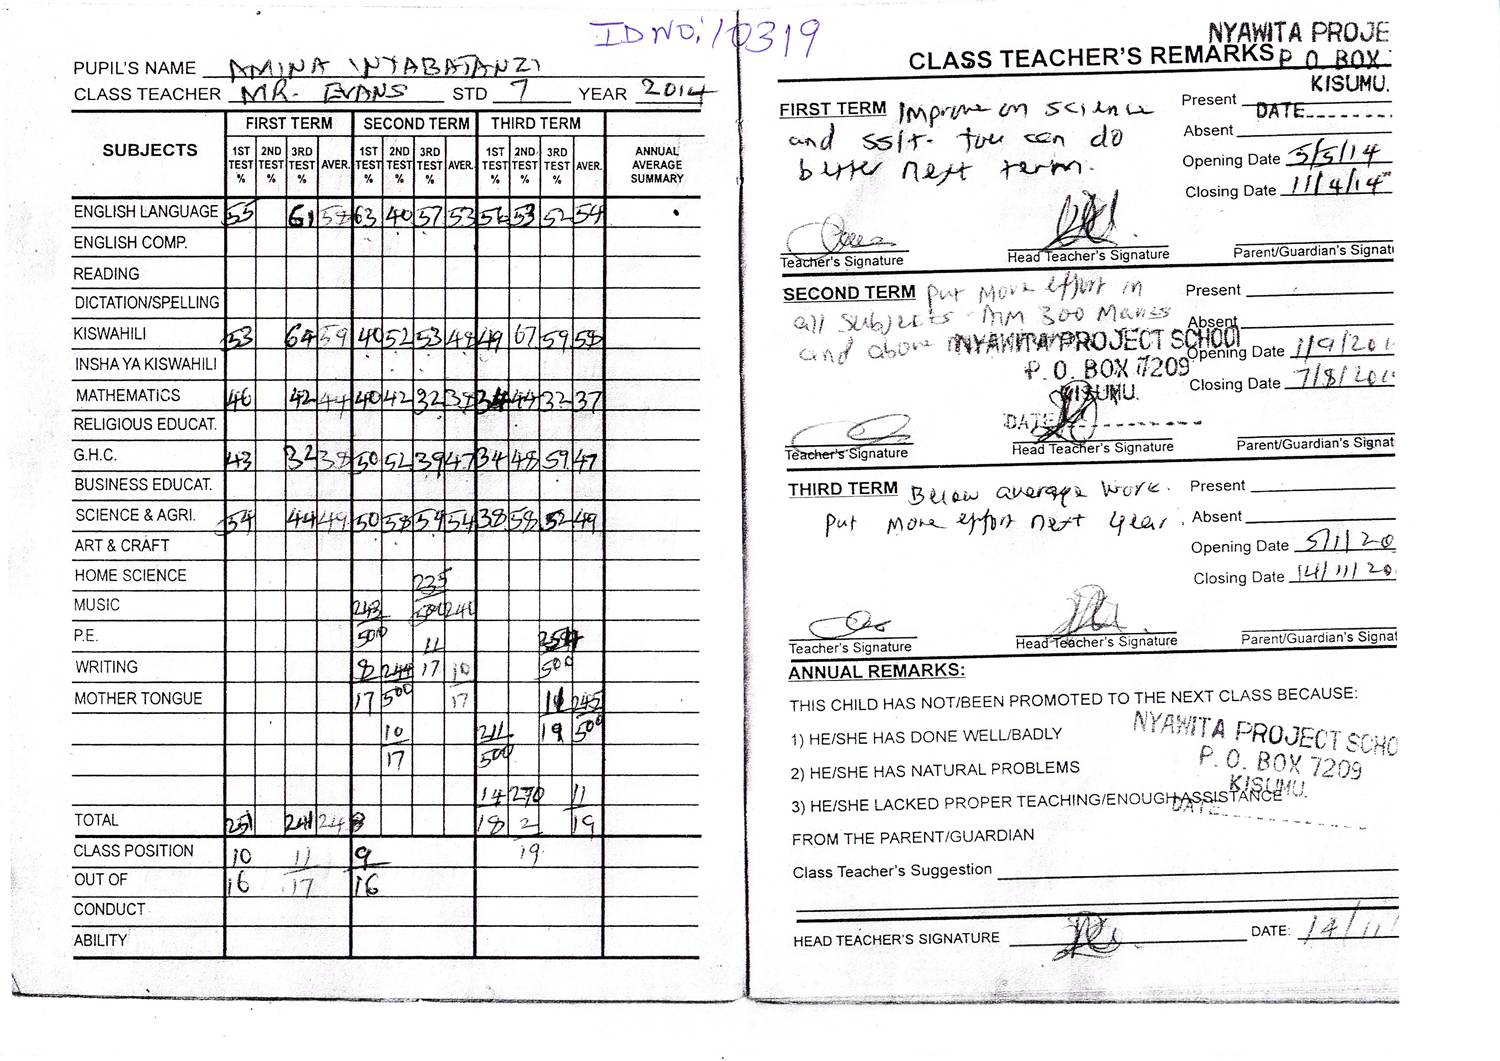 ID NO: 10319
PUPIL'S NAME AMINA NYABATANZI
CLASS TEACHER MR. EVANS STD 7 YEAR 2014
SUBJECTS FIRST TERM SECOND TERM THIRD TERM ANNUAL AVERAGE SUMMARY
1ST TEST % 2ND TEST % 3RD TEST % AVER. 1ST TEST % 2ND TEST % 3RD TEST % AVER. 1ST TEST % 2ND TEST % 3RD TEST % AVER.
ENGLISH LANGUAGE 55 61 57 63 40 57 53 53 52 54
ENGLISH COMP.
READING
DICTATION/SPELLING
KISWAHILI 53 64 59 40 52 53 48 49 67 59 58
INSHA YA KISWAHILI
MATHEMATICS 46 42 44 40 42 32 38 34 44 32 37
RELIGIOUS EDUCAT.
G.H.C. 43 32 38 50 52 39 47 34 48 59 47
BUSINESS EDUCAT.
SCIENCE & AGRI. 54 44 49 50 58 54 54 38 58 52 49
ART & CRAFT
HOME SCIENCE 235
MUSIC 243 500 241
P.E. 500 11 254
WRITING 8 244 17 10 500
MOTHER TONGUE 17 500 17 11 245
10 211 19 500
17 500
14 270 11
TOTAL 251 241 248 18 2 19
CLASS POSITION 10 11 9 19
OUT OF 16 17 16
CONDUCT
ABILITY
NYAWITA PROJE
CLASS TEACHER'S REMARKS P. O. BOX
KISUMU.
DATE
FIRST TERM Improve on science
and ss/r. You can do
better next term.
Present
Absent
Opening Date 5/5/14
Closing Date 11/4/14
Teacher's Signature Head Teacher's Signature Parent/Guardian's Signat
SECOND TERM Put more effort in
all subjects. Aim 300 Marks
and above
NYAWITA PROJECT SCHOOL
P. O. BOX 7209
KISUMU.
DATE
Present
Absent
Opening Date 1/9/201
Closing Date 7/8/201
Teacher's Signature Head Teacher's Signature Parent/Guardian's Signat
THIRD TERM Below average work.
Put more effort next year.
Present
Absent
Opening Date 5/1/20
Closing Date 14/11/20
Teacher's Signature Head Teacher's Signature Parent/Guardian's Signat
ANNUAL REMARKS:
THIS CHILD HAS NOT/BEEN PROMOTED TO THE NEXT CLASS BECAUSE:
1) HE/SHE HAS DONE WELL/BADLY
2) HE/SHE HAS NATURAL PROBLEMS
3) HE/SHE LACKED PROPER TEACHING/ENOUGH ASSISTANCE
FROM THE PARENT/GUARDIAN
NYAWITA PROJECT SCHO
P. O. BOX 7209
KISUMU.
DATE
Class Teacher's Suggestion
HEAD TEACHER'S SIGNATURE DATE: 14/11/